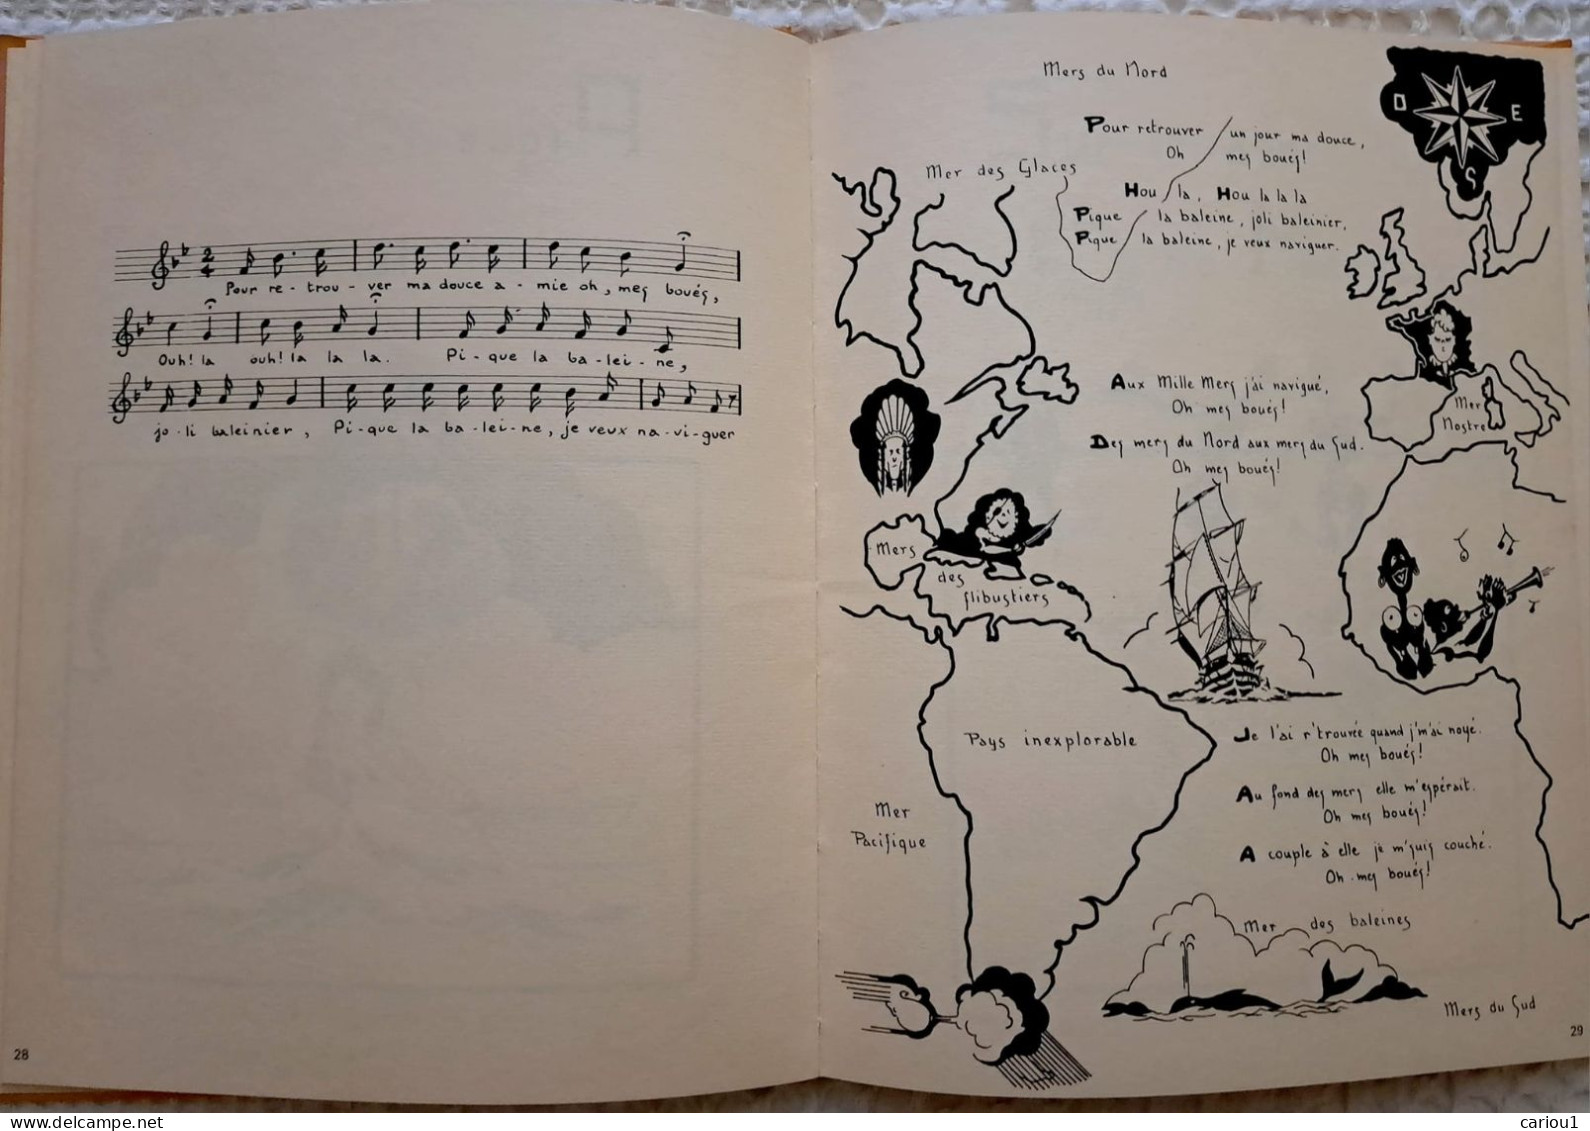 2
4
Pour re-trou-ver ma douce a-mie oh, mes boués,
Ouh! la ouh! la la la. Pi-que la ba-lei-ne,
jo-li baleinier, Pi-que la ba-lei-ne, je veux na-vi-guer
28
Mers du Nord
O E
S
Pour retrouver un jour ma douce,
Oh mes boués!
Mer des Glaces
Hou la, Hou la la la
Pique la baleine, joli baleinier,
Pique la baleine, je veux naviguer.
Aux Mille Mers j'ai navigué,
Oh mes boués!
Mer
Nostre
Des mers du Nord aux mers du Sud.
Oh mes boués!
Mers
des
flibustiers
Pays inexplorable
Je l'ai r'trouvée quand j'm'ai noyé.
Oh mes boués!
Au fond des mers elle m'espérait.
Oh mes boués!
Mer
Pacifique
A couple à elle je m'suis couché.
Oh mes boués!
Mer des baleines
Mers du Sud
29
delcampe.net
cariou1